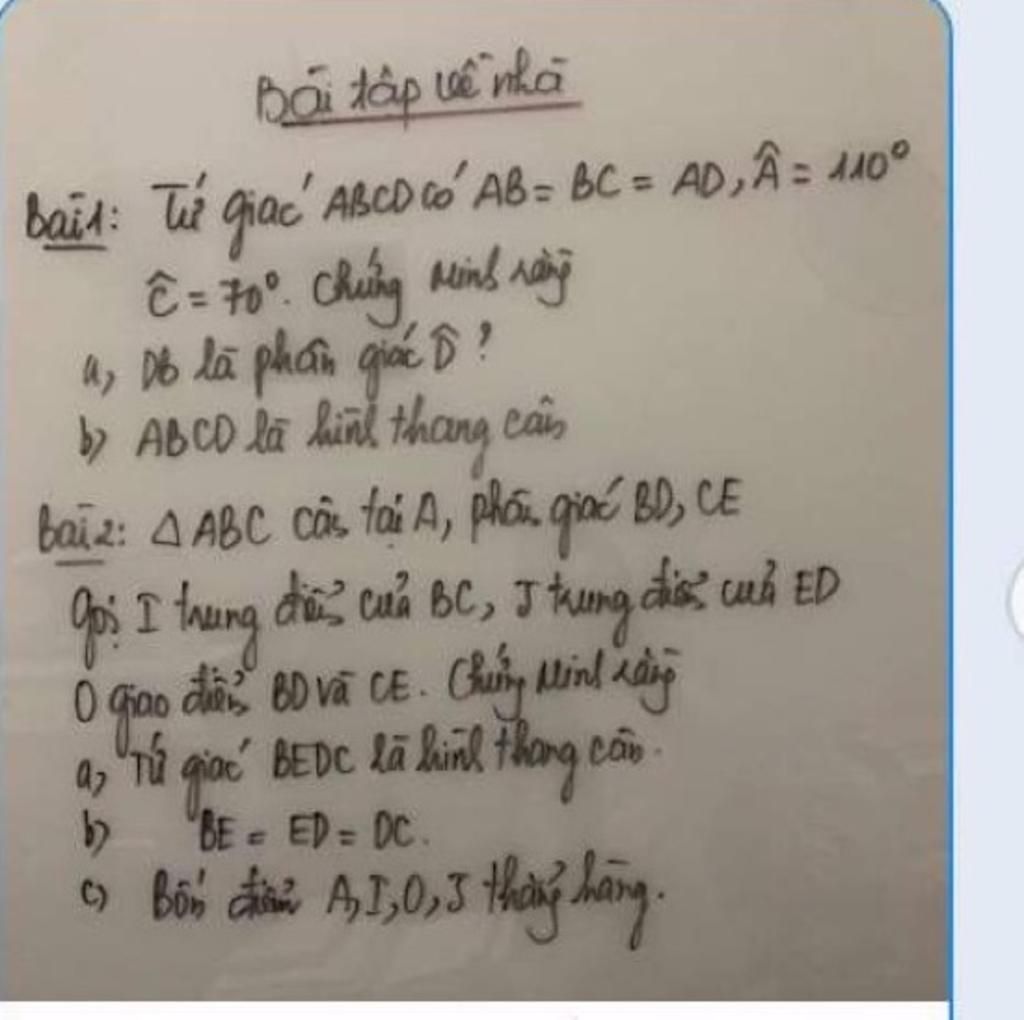 Bài tập về nhà
Bài 1: Tứ giác ABCD có AB = BC = AD, Â = 110°
Ĉ = 70°. Chứng minh rằng
a, Db là phân giác D̂ ?
b) ABCD là hình thang cân
Bài 2: △ABC cân tại A, phân giác BD, CE
Gọi I trung điểm của BC, J trung điểm của ED
O giao điểm BD và CE. Chứng minh rằng
a, Tứ giác BEDC là hình thang cân.
b) BE = ED = DC.
c) Bốn điểm A, I, O, J thẳng hàng.